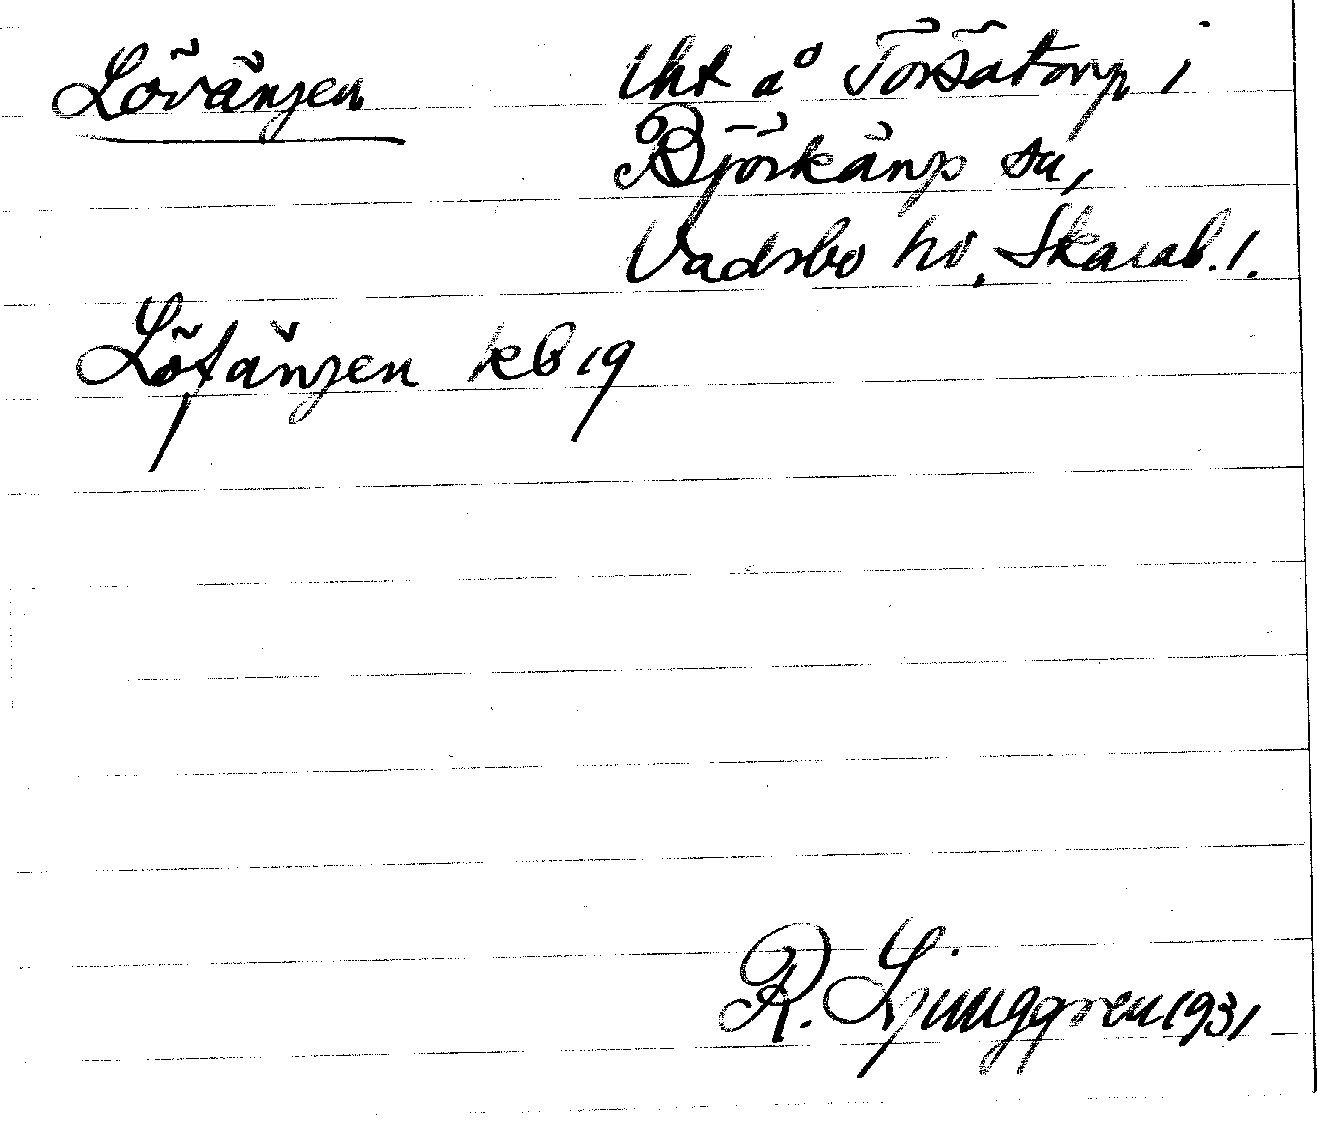 Lövängen
Uht å Torsatorp i
Björkäng sn,
Vadsbo hd, Skarab. l.
Löfängen kb 19
R. Ljunggren 1931